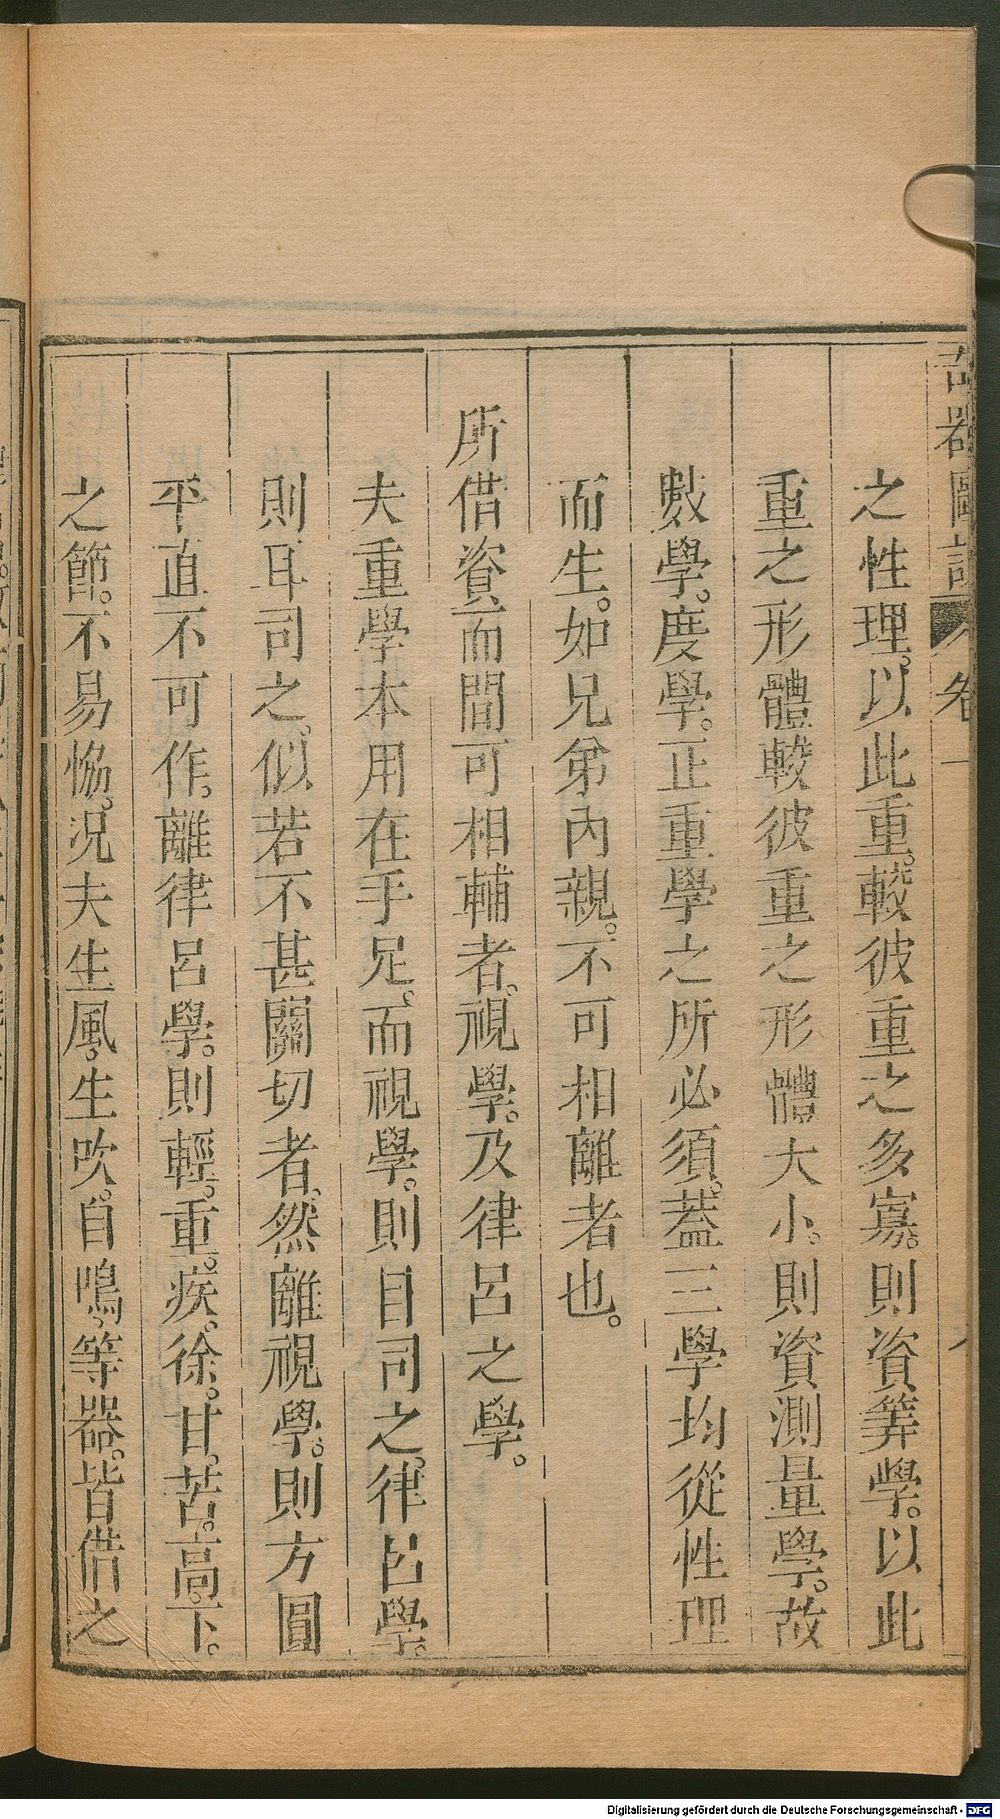 之性理。以此重。較彼重之多寡。則資筭學。以此
重之形體較彼重之形體大小。則資測量學。故
數學。度學。正重學之所必須。蓋三學均從性理
而生。如兄弟內親。不可相離者也。
所借資而間可相輔者。視學。及律呂之學。
夫重學本用在手足。而視學。則目司之。律呂學。
則耳司之。似若不甚關切者。然離視學。則方圓
平直不可作。離律呂學。則輕。重。疾。徐。甘。苦。高。下。
之節。不易恊。况夫生風。生吹。自鳴。等器。皆借之
卷一
Digitalisierung gefördert durch die Deutsche Forschungsgemeinschaft - DFG